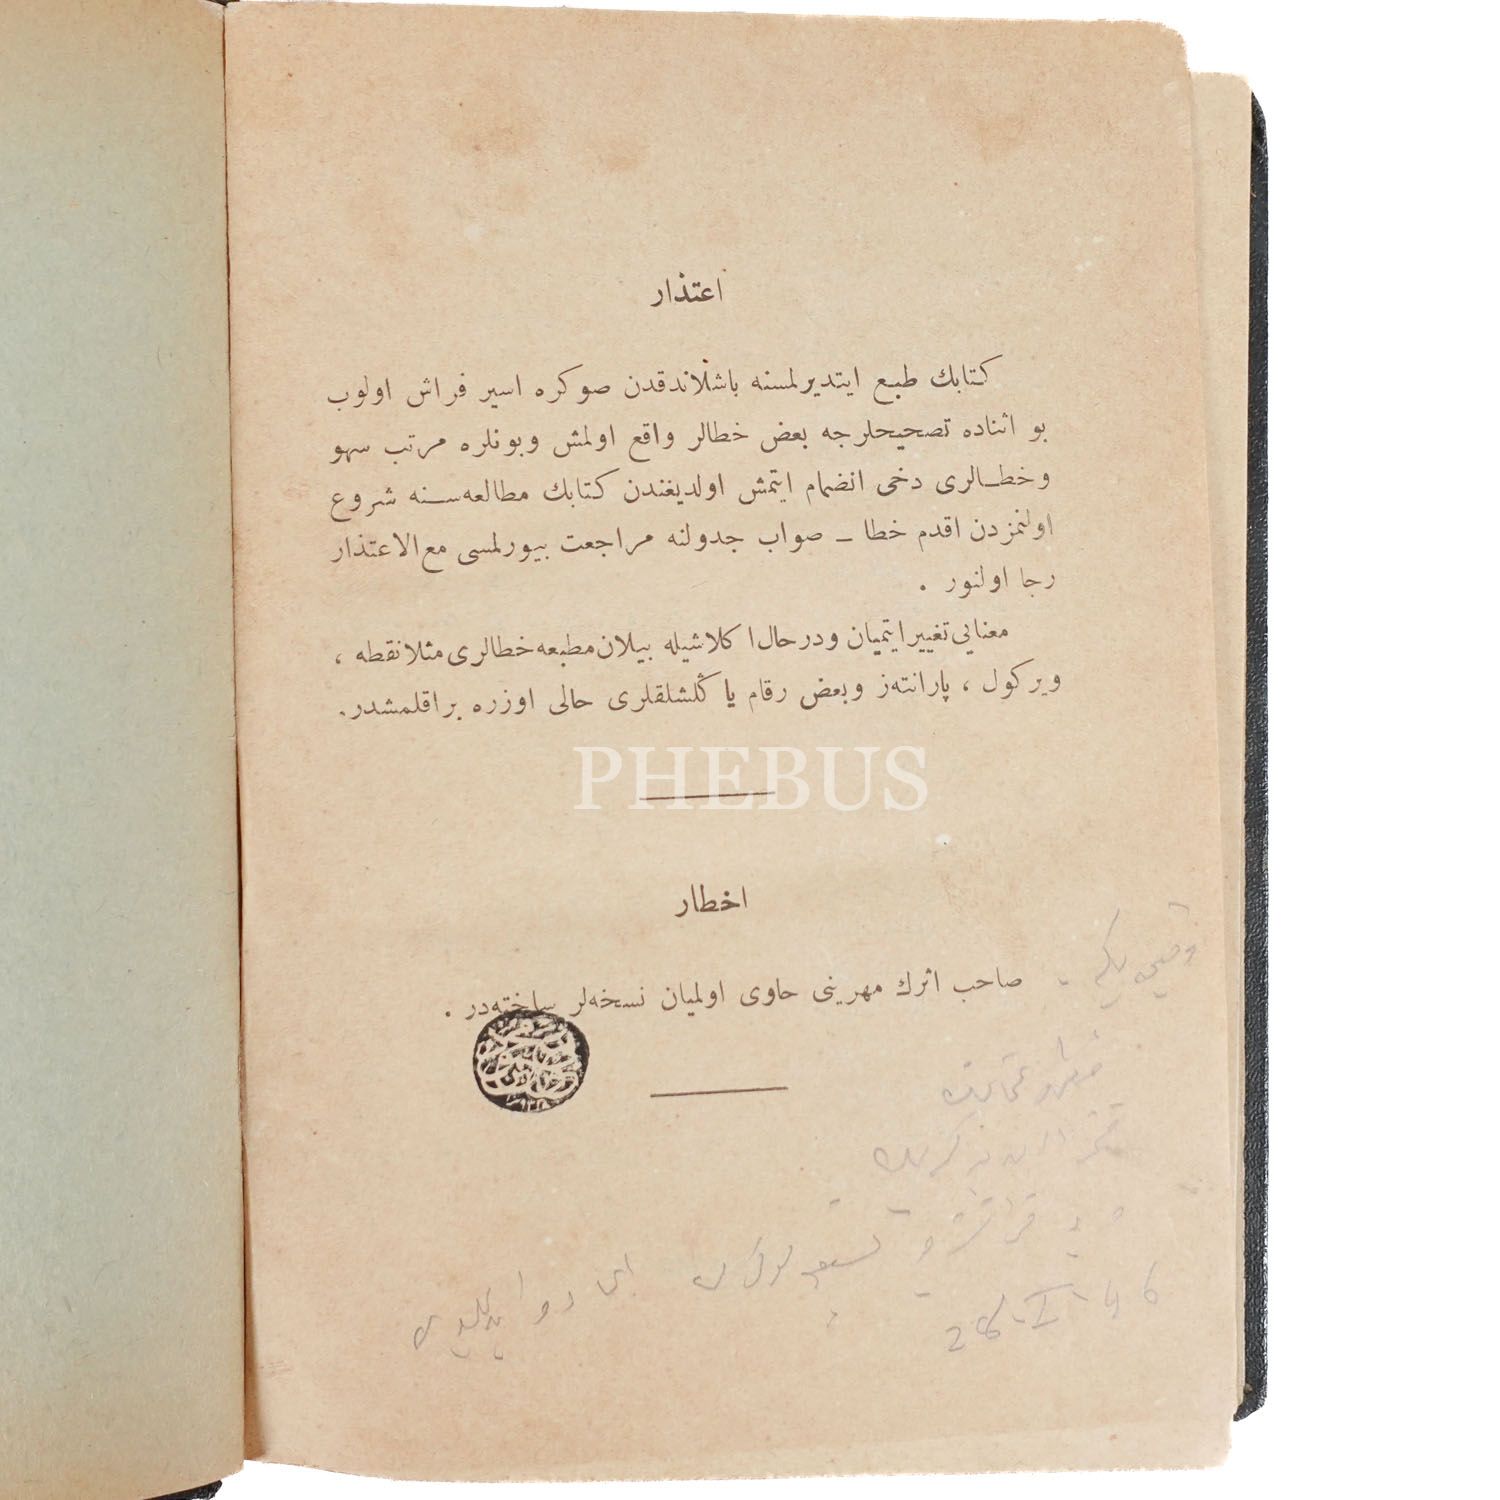 اعتذار
كتابك طبع ايتديرلمسنه باشلاندقدن صوكره اسير فراش اولوب
بو اثناده تصحيحلرجه بعض خطالر واقع اولمش وبونلره مرتب سهو
وخطالرى دخى انضمام ايتمش اولديغندن كتابك مطالعه‌سنه شروع
اولنمزدن اقدم خطا ــ صواب جدولنه مراجعت بيورلمسى مع الاعتذار
رجا اولنور .
معنايى تغيير ايتميان ودرحال اكلاشيله بيلان مطبعه خطالرى مثلا نقطه ،
ويركول ، پارانته‌ز وبعض رقام ياكلشلقلرى حالى اوزره براقلمشدر.
PHEBUS
اخطار
صاحب اثرك مهرينى حاوى اولميان نسخه‌لر ساخته‌در .
28-I-46